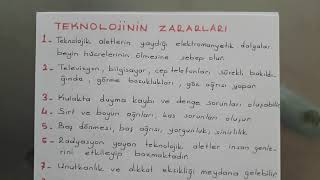 TEKNOLOJİNİN ZARARLARI
1- Teknolojik aletlerin yaydığı elektromanyetik dalgalar
beyin hücrelerinin ölmesine sebep olur.
2- Televizyon, bilgisayar, cep telefonları sürekli bakıldı-
ğında, görme bozuklukları, göz ağrısı yapar
3- Kulakta duyma kaybı ve denge sorunları oluşabilir
4- Sırt ve boyun ağrıları, kas sorunları oluşur
5- Baş dönmesi, baş ağrısı, yorgunluk, sinirlilik
6- Radyasyon yayan teknolojik aletler insan genle-
rini etkileyip bozmaktadır
7- Unutkanlık ve dikkat eksikliği meydana gelebilir